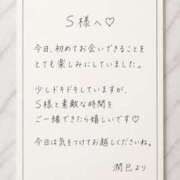 S様へ♡
今日、初めてお会いできることを
とても楽しみにしていました。
少しドキドキしていますが、
S様と素敵な時間を
ご一緒できたら嬉しいです!
今日は気をつけてお越しくださいね。
潤巳より